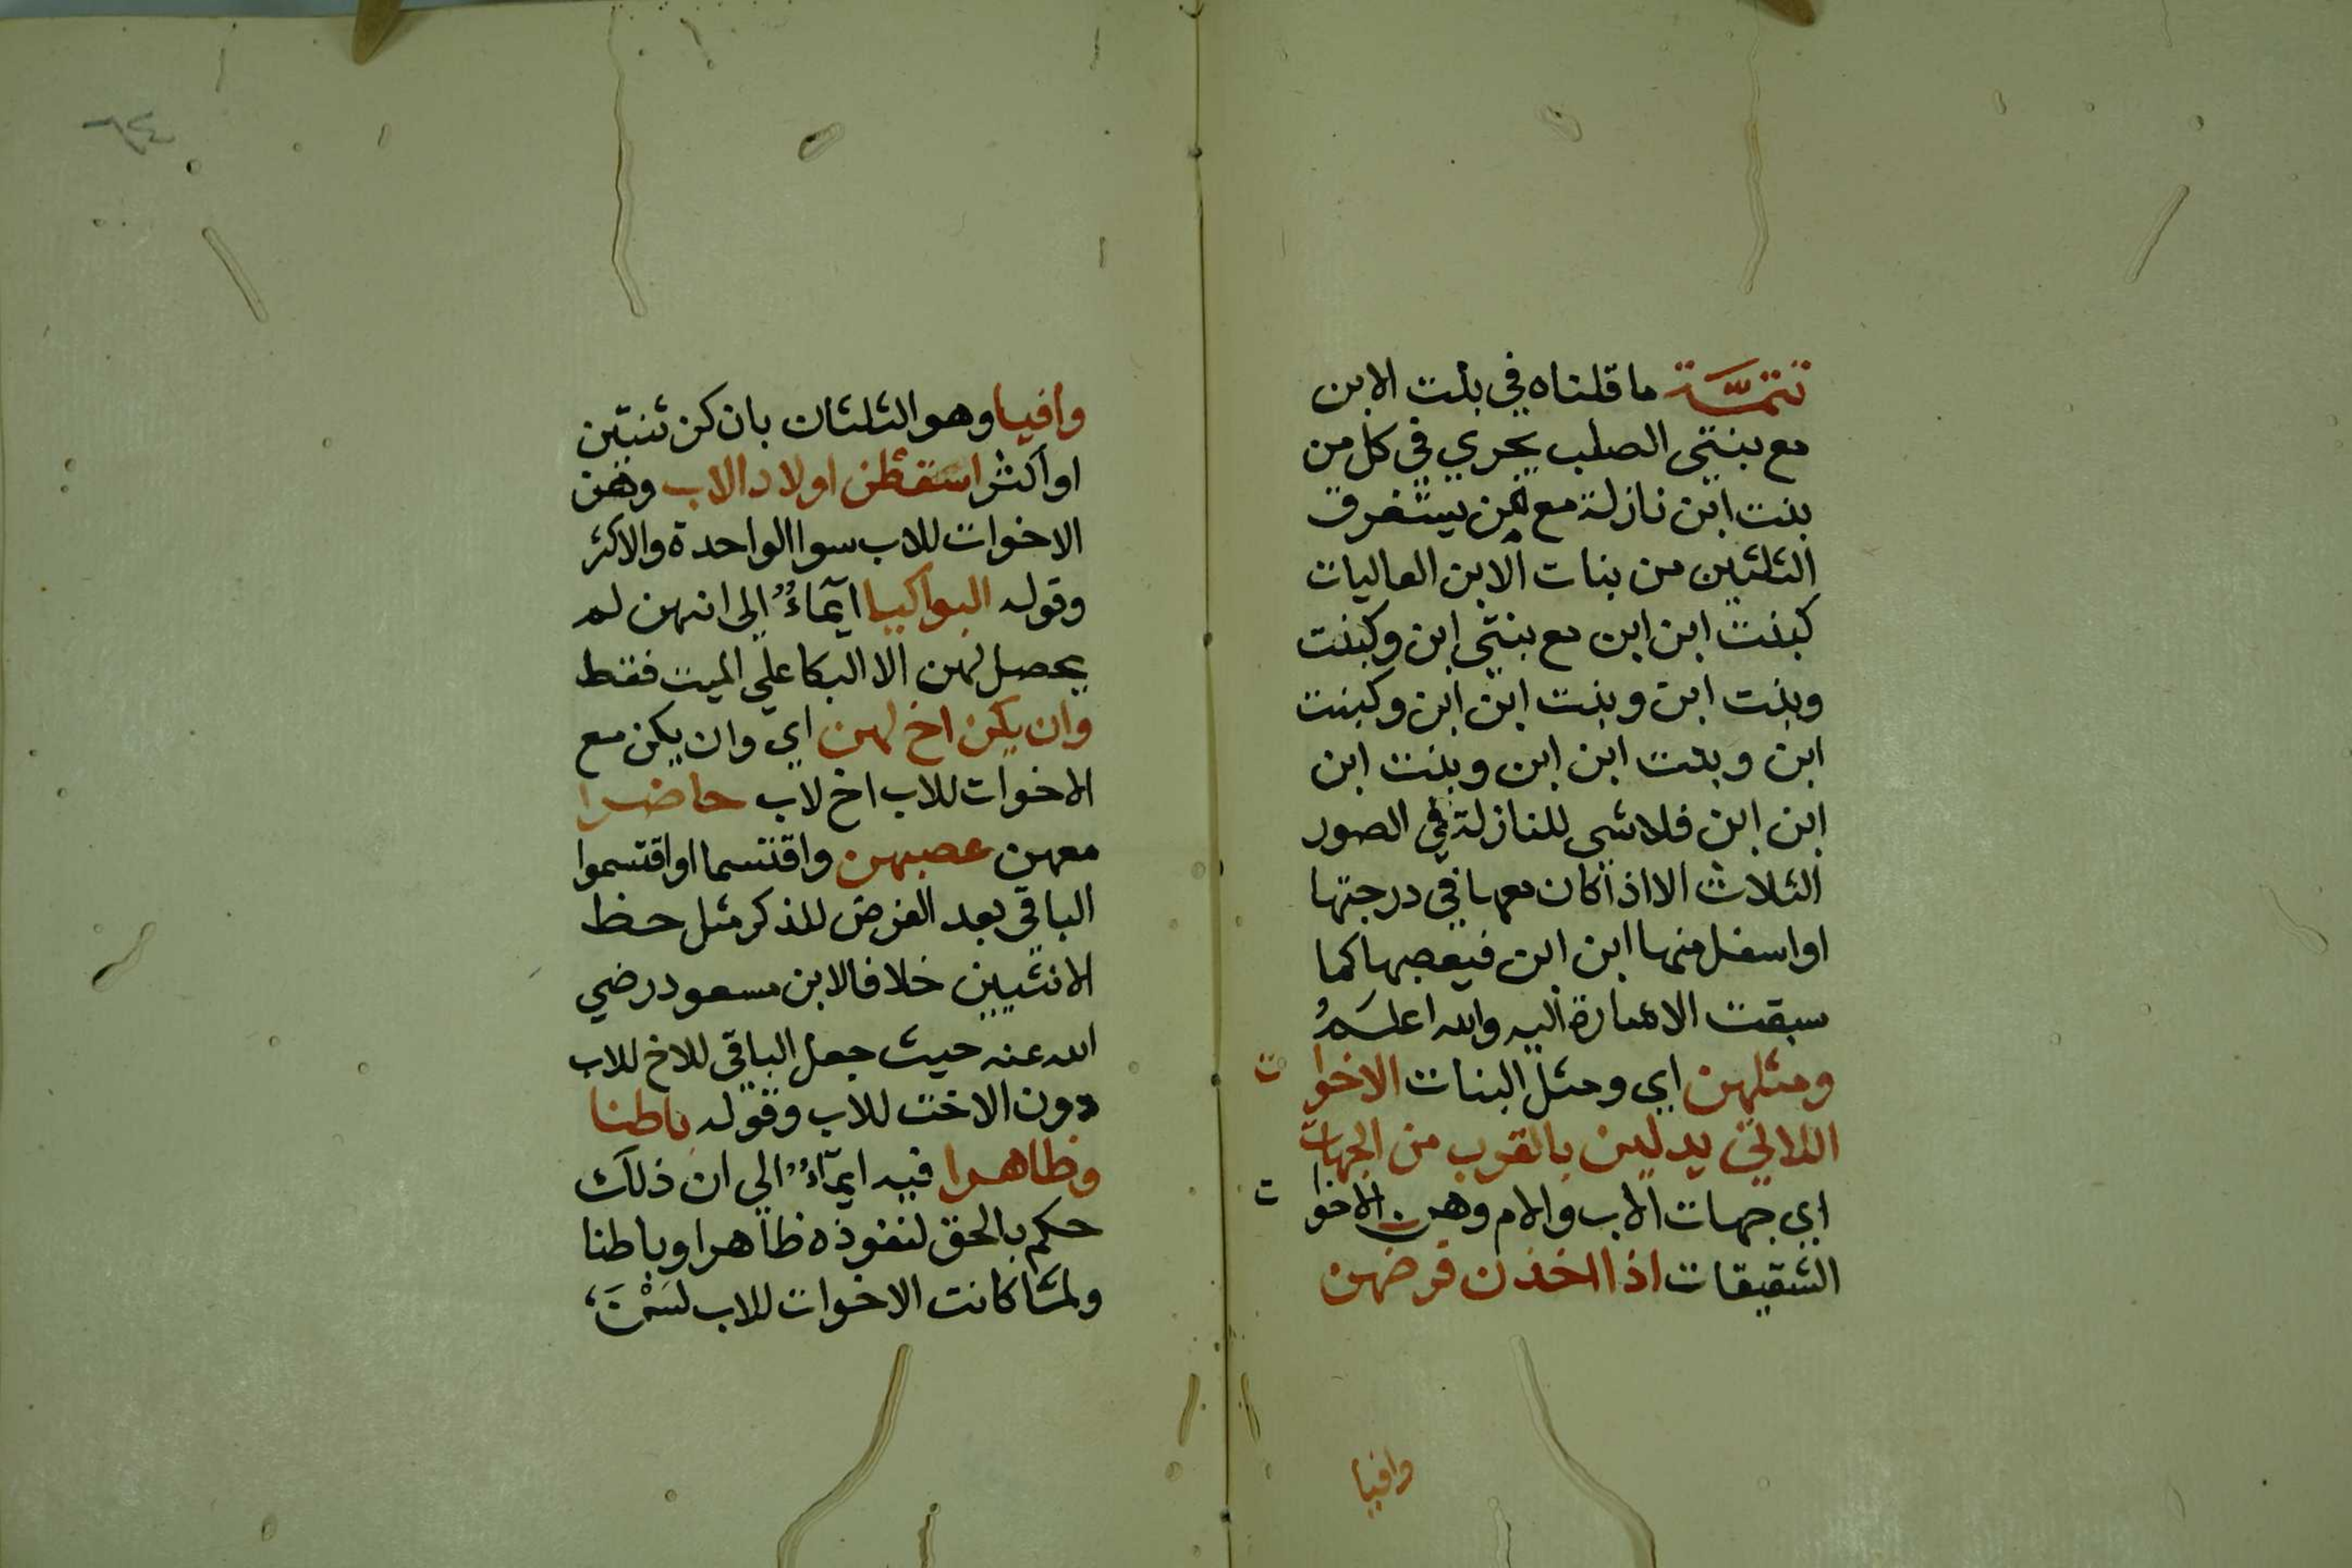 تتمّة ما قلناه في بنت الابن
مع بنتي الصلب يجري في كل من
بنت ابن نازلة مع من يستغرق
الثلثين من بنات الابن العاليات
كبنت ابن ابن مع بنتي ابن وكبنت
وبنت ابن وبنت ابن ابن وكبنت
ابن وبنت ابن ابن وبنت ابن
ابن ابن فلاشي للنازلة في الصور
الثلاث الا اذا كان معها في درجتها
او اسفل منها ابن ابن فيعصبها كما
سبقت الاشارة اليه والله اعلم
ومثلهن اي ومثل البنات الاخوات
اللاتي يدلين بالقرب من الجهات
اي جهات الاب والام وهن الاخوات
الشقيقات اذا اخذن فرضهن
وافيا
وافيا وهو الثلثان بان كن ثنتين
او اكثر اسقطن اولاد الاب وهن
الاخوات للاب سوا الواحدة والاكثر
وقوله البواكيا ايماءٌ الى انهن لم
يحصل لهن الا البكا علي الميت فقط
وان يكن اخ لهن اي وان يكن مع
الاخوات للاب اخ لاب حاضرا
معهن عصبهن واقتسما او اقتسموا
الباقي بعد الفرض للذكر مثل حظ
الانثيين خلافا لابن مسعود رضي
الله عنه حيث جعل الباقي للاخ للاب
دون الاخت للاب وقوله باطنا
وظاهرا فيه ايماءٌ الي ان ذلك
حكم بالحق لنفوذه ظاهرا وباطنا
ولمّا كانت الاخوات للاب لسْنَ